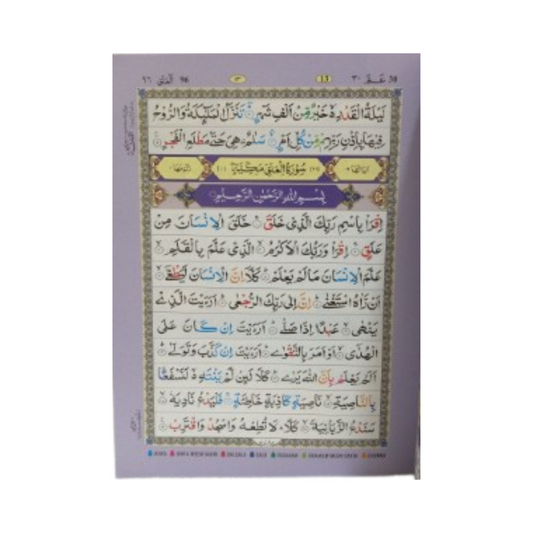 ٩٦ العلق 96 ١٣ عم ٣٠ 30
لَيْلَةُ الْقَدْرِ ەۙ خَيْرٌ مِّنْ اَلْفِ شَهْرٍ ؕ تَنَزَّلُ الْمَلٰٓئِكَةُ وَالرُّوْحُ
فِيْهَا بِاِذْنِ رَبِّهِمْ ۚ مِنْ كُلِّ اَمْرٍ ۙ سَلٰمٌ ۛ هِيَ حَتّٰى مَطْلَعِ الْفَجْرِ
سُوْرَةُ الْعَلَقِ مَكِّيَّةٌ
بِسْمِ اللّٰهِ الرَّحْمٰنِ الرَّحِيْمِ
اِقْرَاْ بِاسْمِ رَبِّكَ الَّذِيْ خَلَقَ ۚ خَلَقَ الْاِنْسَانَ مِنْ
عَلَقٍ ۚ اِقْرَاْ وَرَبُّكَ الْاَكْرَمُ ۙ الَّذِيْ عَلَّمَ بِالْقَلَمِ ۙ
عَلَّمَ الْاِنْسَانَ مَا لَمْ يَعْلَمْ ؕ كَلَّاۤ اِنَّ الْاِنْسَانَ لَيَطْغٰٓى ۙ
اَنْ رَّاٰهُ اسْتَغْنٰى ؕ اِنَّ اِلٰى رَبِّكَ الرُّجْعٰى ؕ اَرَءَيْتَ الَّذِيْ
يَنْهٰى ۙ عَبْدًا اِذَا صَلّٰى ؕ اَرَءَيْتَ اِنْ كَانَ عَلَى
الْهُدٰٓى ۙ اَوْ اَمَرَ بِالتَّقْوٰى ؕ اَرَءَيْتَ اِنْ كَذَّبَ وَتَوَلّٰى ؕ
اَلَمْ يَعْلَمْ بِاَنَّ اللّٰهَ يَرٰى ؕ كَلَّا لَئِنْ لَّمْ يَنْتَهِ ەۙ لَنَسْفَعًۢا
بِالنَّاصِيَةِ ۙ نَاصِيَةٍ كَاذِبَةٍ خَاطِئَةٍ ۚ فَلْيَدْعُ نَادِيَهٗ ۙ
سَنَدْعُ الزَّبَانِيَةَ ۙ كَلَّا ؕ لَا تُطِعْهُ وَاسْجُدْ وَاقْتَرِبْ